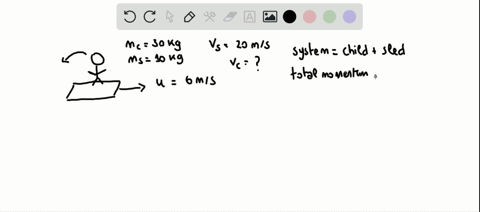 mc = 30 kg
ms = 10 kg
vs = 20 m/s
vc = ?
u = 6 m/s
system = child + sled
total momentum